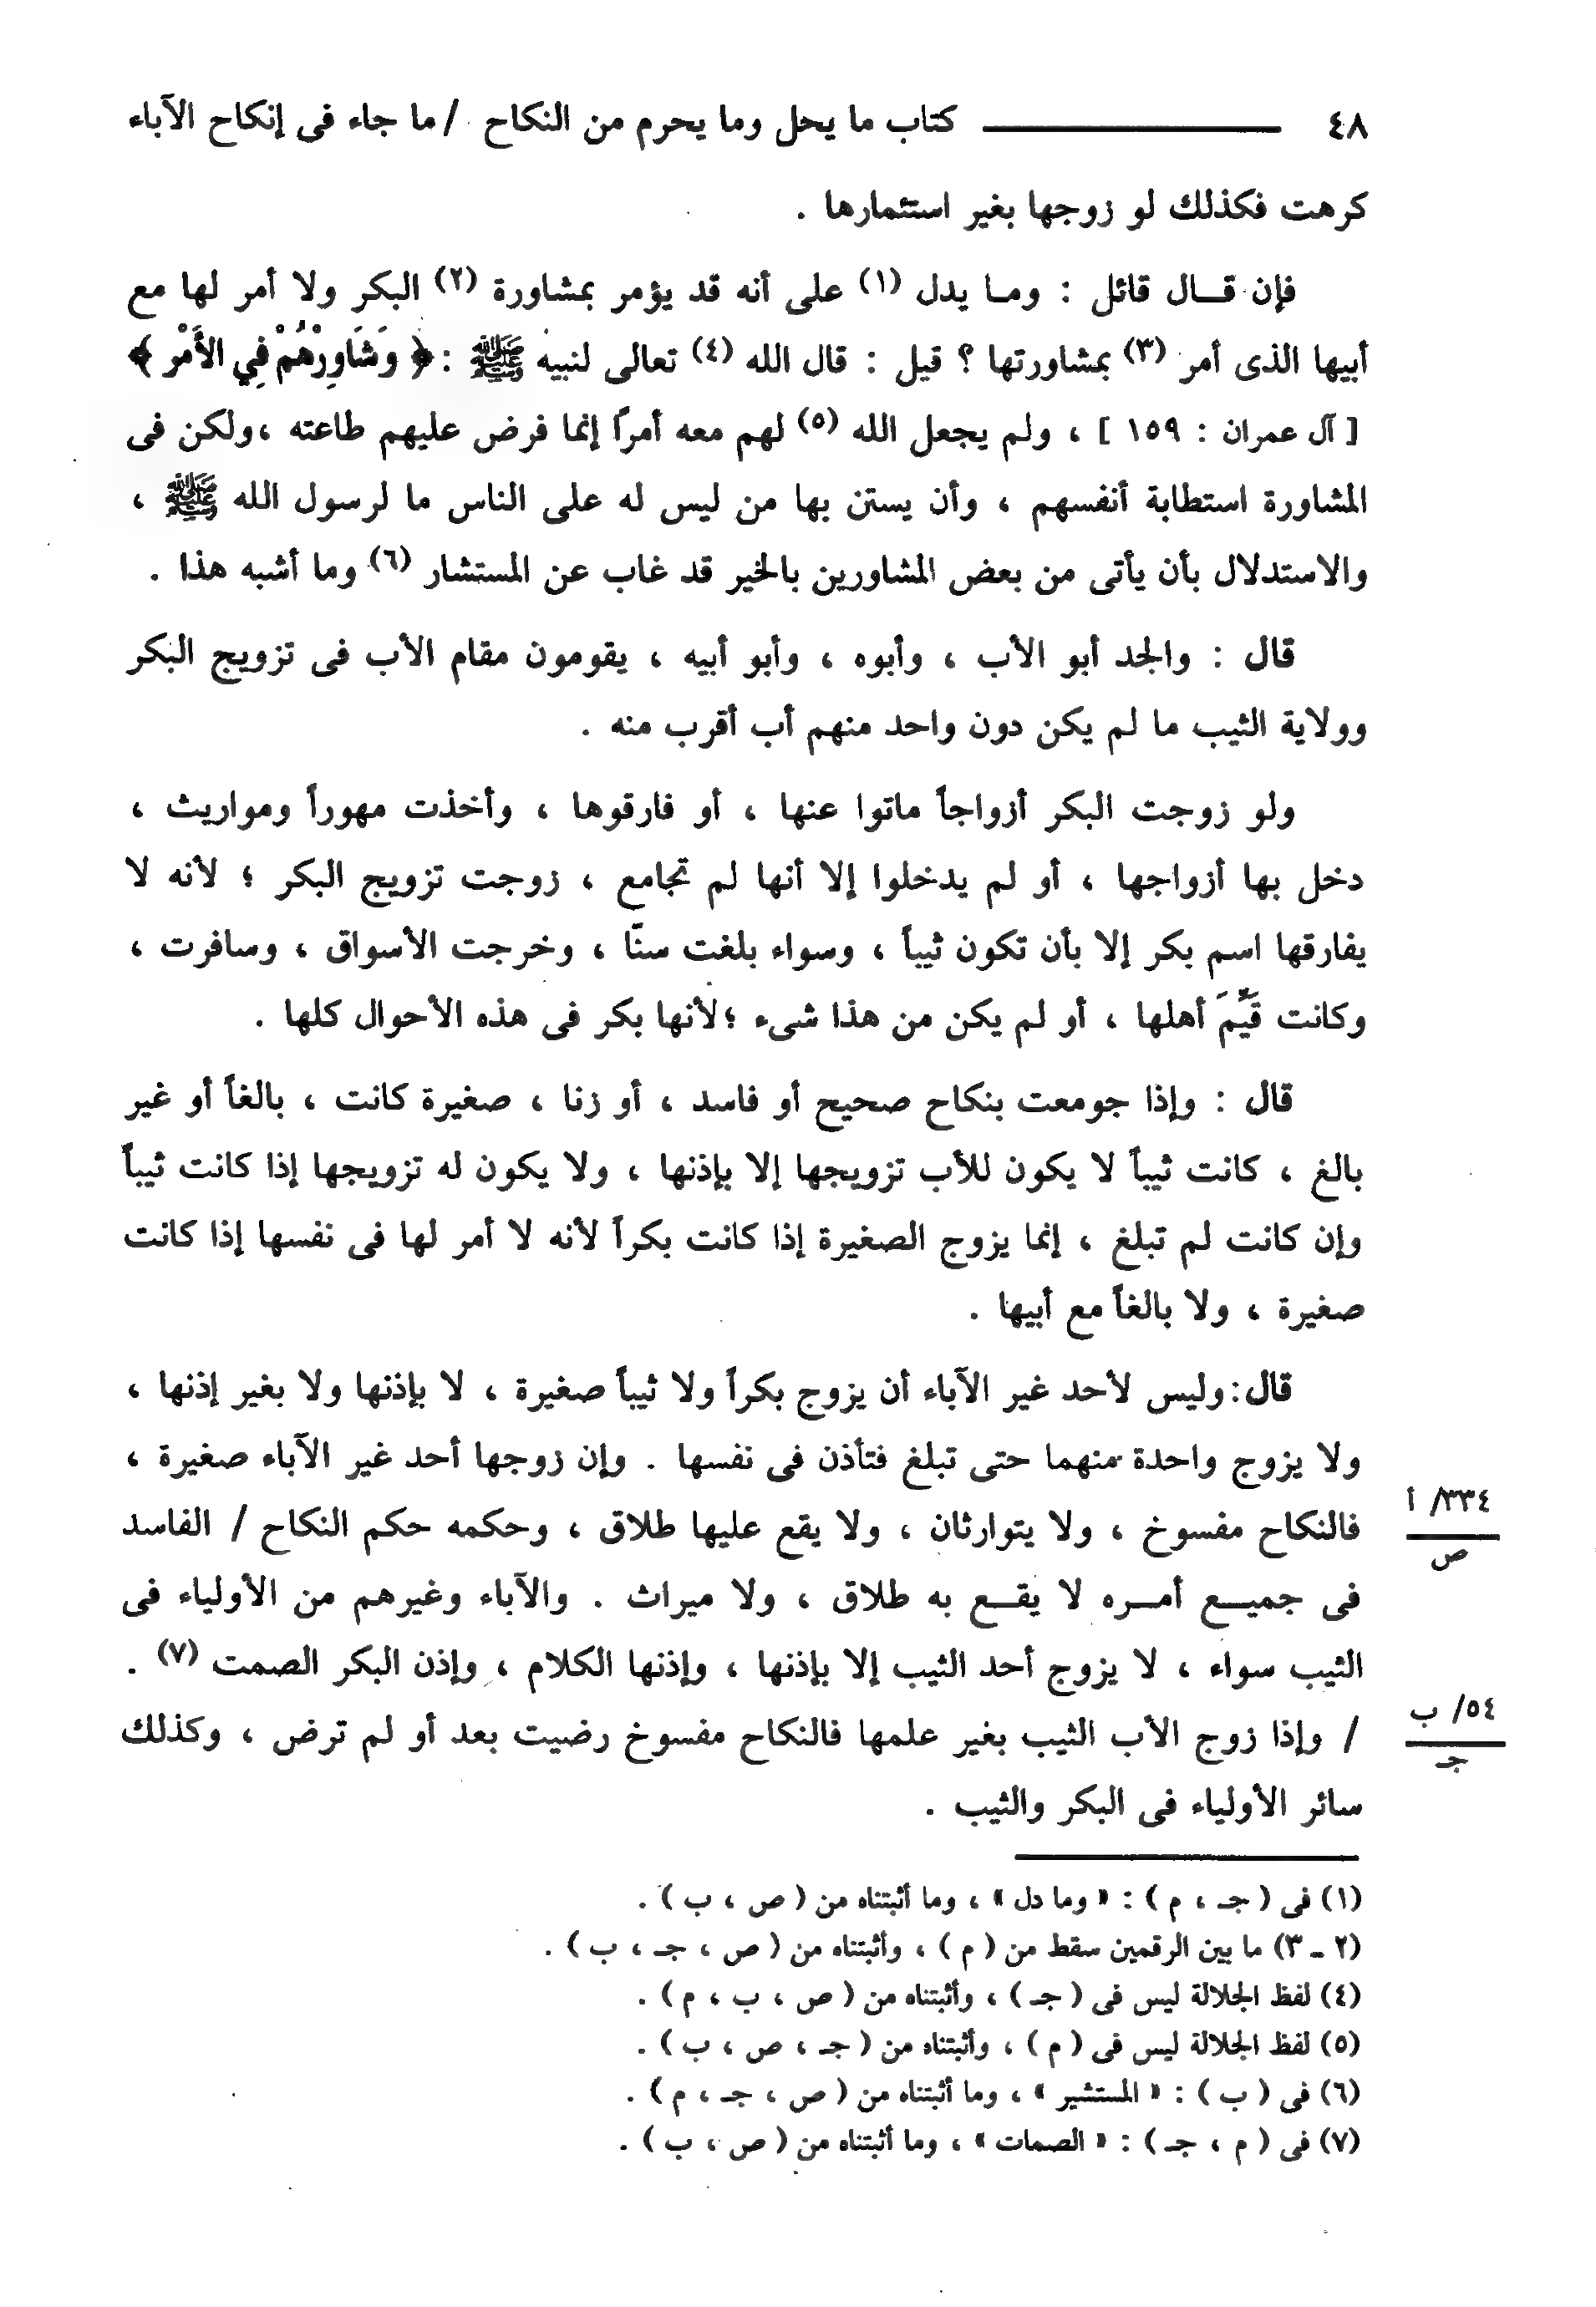 ٤٨ كتاب ما يحل وما يحرم من النكاح / ما جاء فى إنكاح الآباء
كرهت فكذلك لو زوجها بغير استئمارها .
فإن قـــال قائل : ومـا يدل (١) على أنه قد يؤمر بمشاورة (٢) البكر ولا أمر لها مع
أبيها الذى أمر (٣) بمشاورتها ؟ قيل : قال الله (٤) تعالى لنبيه ﷺ : ﴿ وَشَاوِرْهُمْ فِي الأَمْرِ ﴾
[ آل عمران : ١٥٩ ] ، ولم يجعل الله (٥) لهم معه أمراً إنما فرض عليهم طاعته ،ولكن فى
المشاورة استطابة أنفسهم ، وأن يستن بها من ليس له على الناس ما لرسول الله ﷺ ،
والاستدلال بأن يأتى من بعض المشاورين بالخير قد غاب عن المستشار (٦) وما أشبه هذا .
قال : والجد أبو الأب ، وأبوه ، وأبو أبيه ، يقومون مقام الأب فى تزويج البكر
وولاية الثيب ما لم يكن دون واحد منهم أب أقرب منه .
ولو زوجت البكر أزواجاً ماتوا عنها ، أو فارقوها ، وأخذت مهوراً ومواريث ،
دخل بها أزواجها ، أو لم يدخلوا إلا أنها لم تجامع ، زوجت تزويج البكر ؛ لأنه لا
يفارقها اسم بكر إلا بأن تكون ثيباً ، وسواء بلغت سنّا ، وخرجت الأسواق ، وسافرت ،
وكانت قَيِّمَ أهلها ، أو لم يكن من هذا شىء ؛لأنها بكر فى هذه الأحوال كلها .
قال : وإذا جومعت بنكاح صحيح أو فاسد ، أو زنا ، صغيرة كانت ، بالغاً أو غير
بالغ ، كانت ثيباً لا يكون للأب تزويجها إلا بإذنها ، ولا يكون له تزويجها إذا كانت ثيباً
وإن كانت لم تبلغ ، إنما يزوج الصغيرة إذا كانت بكراً لأنه لا أمر لها فى نفسها إذا كانت
صغيرة ، ولا بالغاً مع أبيها .
قال:وليس لأحد غير الآباء أن يزوج بكراً ولا ثيباً صغيرة ، لا بإذنها ولا بغير إذنها ،
ولا يزوج واحدة منهما حتى تبلغ فتأذن فى نفسها . وإن زوجها أحد غير الآباء صغيرة ،
٣٣٤/ أ
ص
فالنكاح مفسوخ ، ولا يتوارثان ، ولا يقع عليها طلاق ، وحكمه حكم النكاح / الفاسد
فى جميـــع أمـــره لا يقـــع به طلاق ، ولا ميراث . والآباء وغيرهم من الأولياء فى
الثيب سواء ، لا يزوج أحد الثيب إلا بإذنها ، وإذنها الكلام ، وإذن البكر الصمت (٧) .
٥٤/ ب
جـ
/ وإذا زوج الأب الثيب بغير علمها فالنكاح مفسوخ رضيت بعد أو لم ترض ، وكذلك
سائر الأولياء فى البكر والثيب .
(١) فى ( جـ ، م ) : « وما دل » ، وما أثبتناه من ( ص ، ب ) .
(٢ ـ ٣) ما بين الرقمين سقط من ( م ) ، وأثبتناه من ( ص ، جـ ، ب ) .
(٤) لفظ الجلالة ليس فى ( جـ ) ، وأثبتناه من ( ص ، ب ، م ) .
(٥) لفظ الجلالة ليس فى ( م ) ، وأثبتناه من ( جـ ، ص ، ب ) .
(٦) فى ( ب ) : « المستشير » ، وما أثبتناه من ( ص ، جـ ، م ) .
(٧) فى ( م ، جـ ) : « الصمات » ، وما أثبتناه من ( ص ، ب ) .